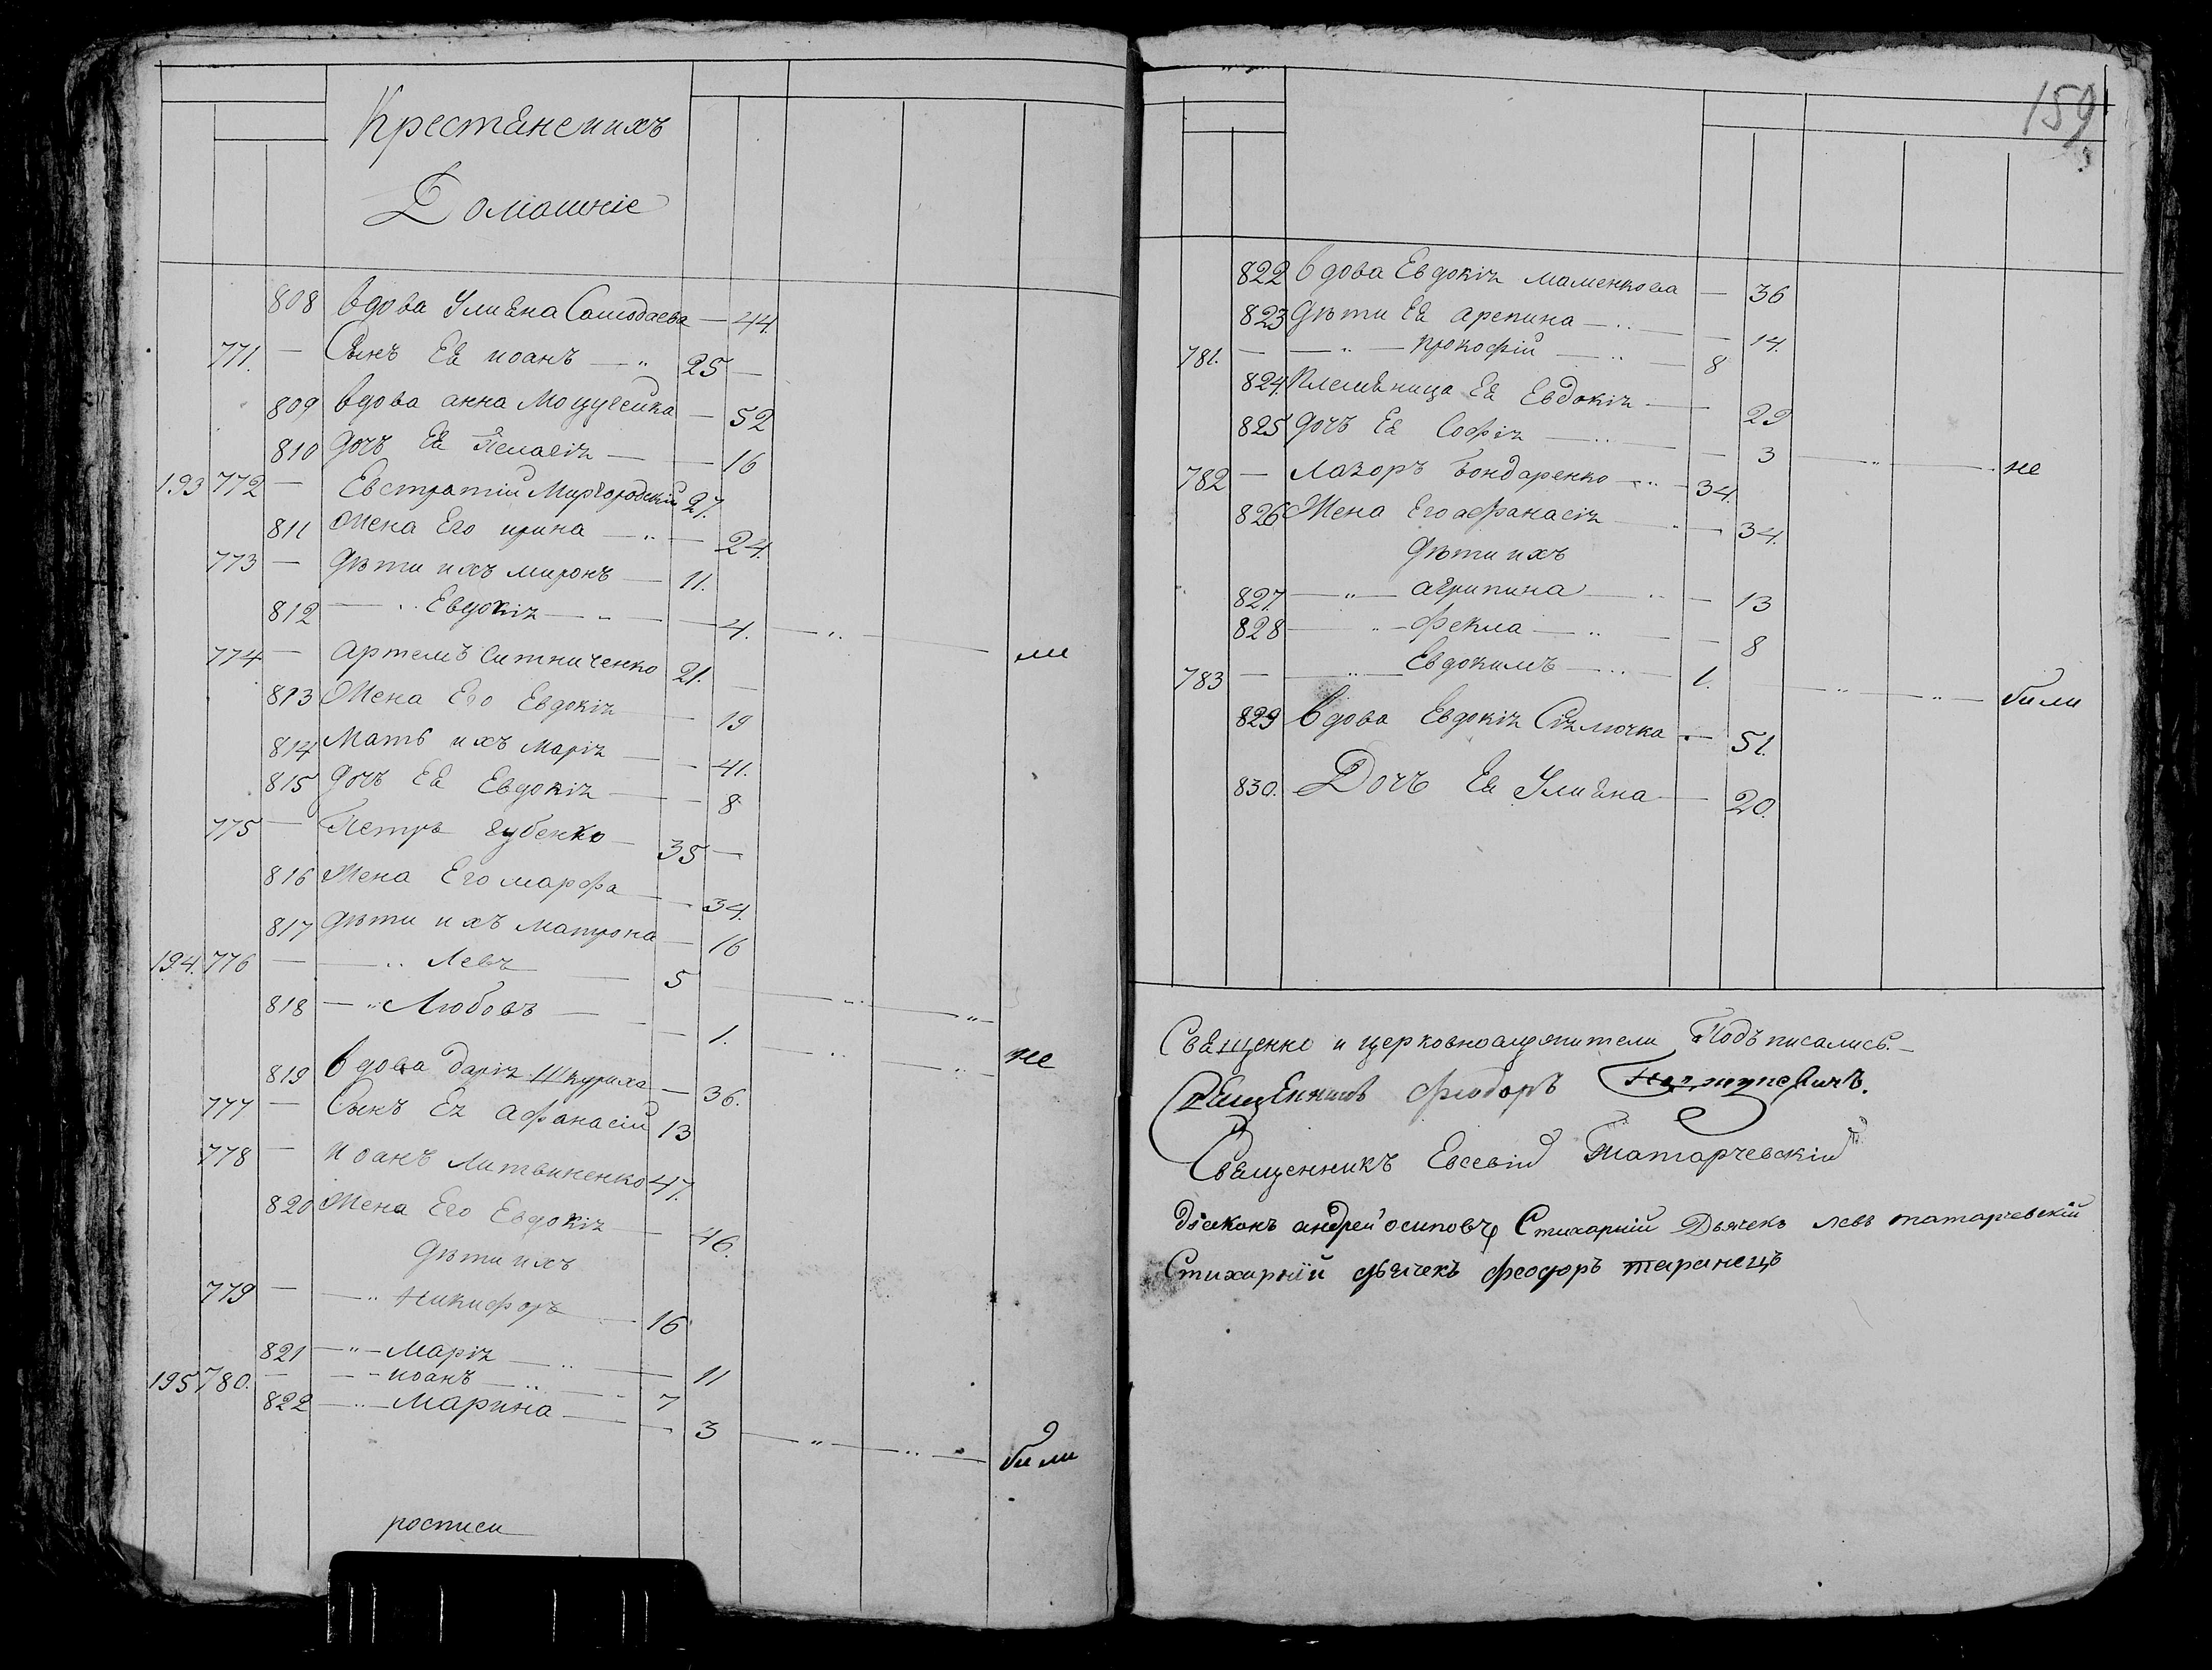 Крестяне и ихъ
Домашніе
808 вдова Улияна Самодаева — 44.
771. — Сынъ Ея иоанъ — „ 25 —
809 вдова анна — 52
810 дочъ Ея Пелагія — — 16
193 772 — Евстратий Миргородский 27.
811 Жена Его ирина — „ — 24.
773 — дѣти ихъ миронъ — 11.
812 — „ Евдокія — „ — 4. — „ — ли
774 — артемъ Ситниченко 21. —
813 Жена Его Евдокія — 19
814 Мать ихъ Марія — — 41.
815 дочъ Ея Евдокія — — 8
775 — Петръ губенко — 35 —
816 Жена Его марфа — 34.
817 дѣти ихъ матрона — 16
194. 776 — — „ Левъ — 5 — „ — „ —
818 — „ Любовъ — — 1. — „ — „ — не
819 вдова дарія Шкуриха — 36.
777 — Сынъ Ея афанасій 13
778 — иоанъ литвиненко 47.
820 Жена Его Евдокія — 46.
дѣти ихъ
779 — — „ никифоръ — 16
821 — „ — Марія — „ — 11
195 780. — — — иоанъ — „ — 7
822 — „ — Марина — — 3 — „ — „ — били
росписи
159
822 вдова Евдокія маменкова — 36
823 дѣти Ея арепина — „ — 14.
781. — — „ — прокофій — „ — 8
824. Племяница Ея Евдокія — 29
825 дочъ Ея Софія — „ — 3 — „ — не
782 — лазоръ бондаренко — „ — 34.
826 Жена Его афанасія — „ — 34.
дѣти ихъ
827 — „ — агрипина — „ — 13
828 — „ — фекла — „ — 8
783 — — „ — Евдокимъ — „ — 1. — „ — „ — били
829 вдова Евдокія — 51.
830. Дочъ Ея Улияна — 20.
Священно и церковнослужители Подъписались. —
Священникъ феодоръ
Священникъ Евсевій Татарчевскій
діаконъ андрей осиповъ Стихарній Дьячекъ левъ татарчевскій
Стихарній дьячекъ феодоръ таранецъ